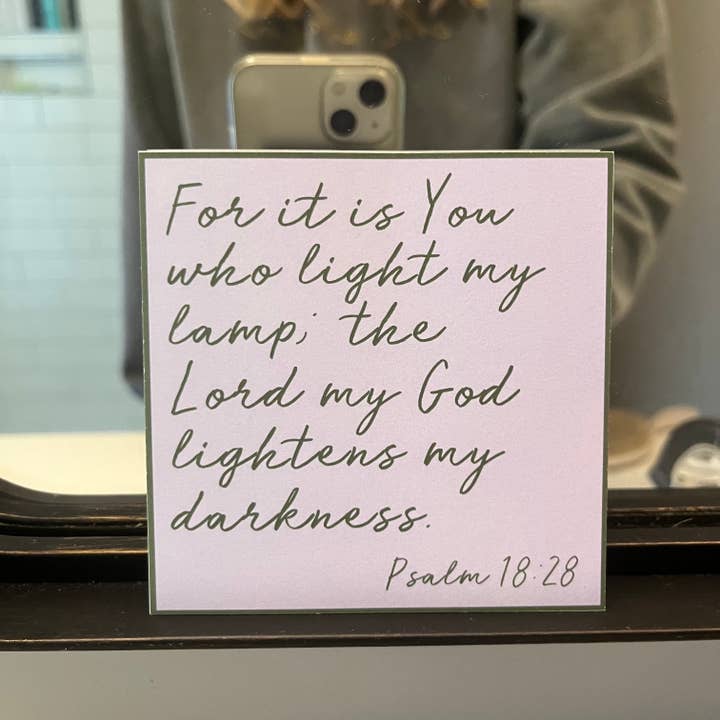 For it is You
who light my
lamp; the
Lord my God
lightens my
darkness.
Psalm 18:28